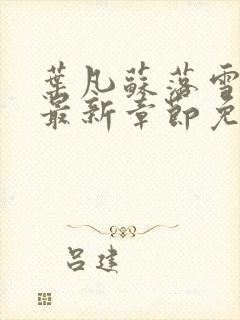 葉凡蘇落雪
最新章節免
呂建